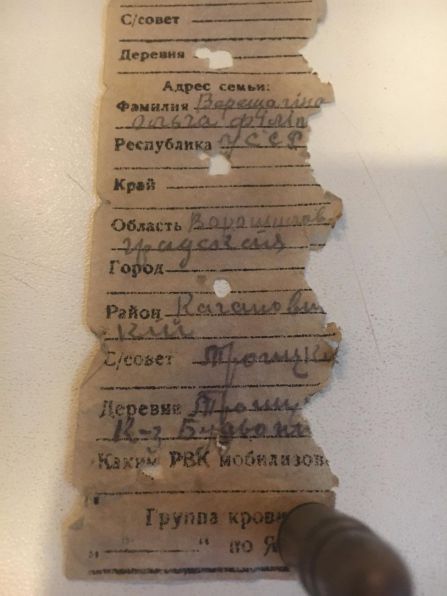 С/совет
Деревня
Адрес семьи:
Фамилия Верещагіна
Ольга Філіп
Республика УССР
Край
Область Ворошилов
градская
Город
Район Каганович
кий
С/совет Троицк
Деревня Троиц
К-з
Каким РВК мобилизов
Группа крови
„ “ по Я